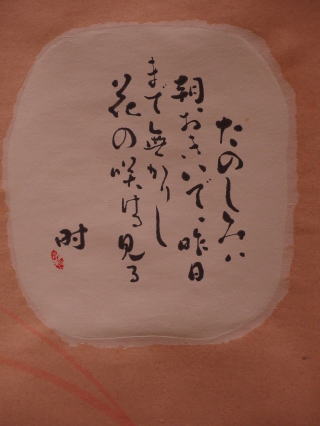 たのしみハ
朝おきいでゝ昨日
まで無かりし
花の咲ける見る
時